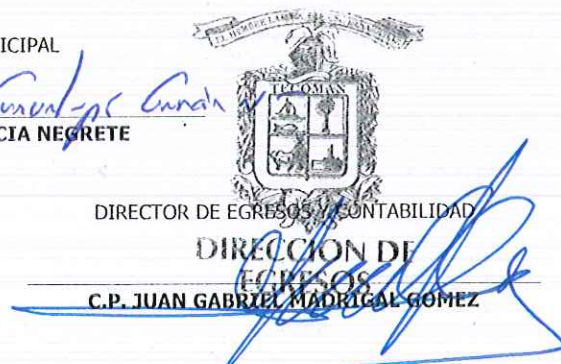 ICIPAL
CIA NEGRETE
TECOMAN
DIRECTOR DE EGRESOS Y CONTABILIDAD
DIRECCION DE
EGRESOS
C.P. JUAN GABRIEL MADRIGAL GOMEZ